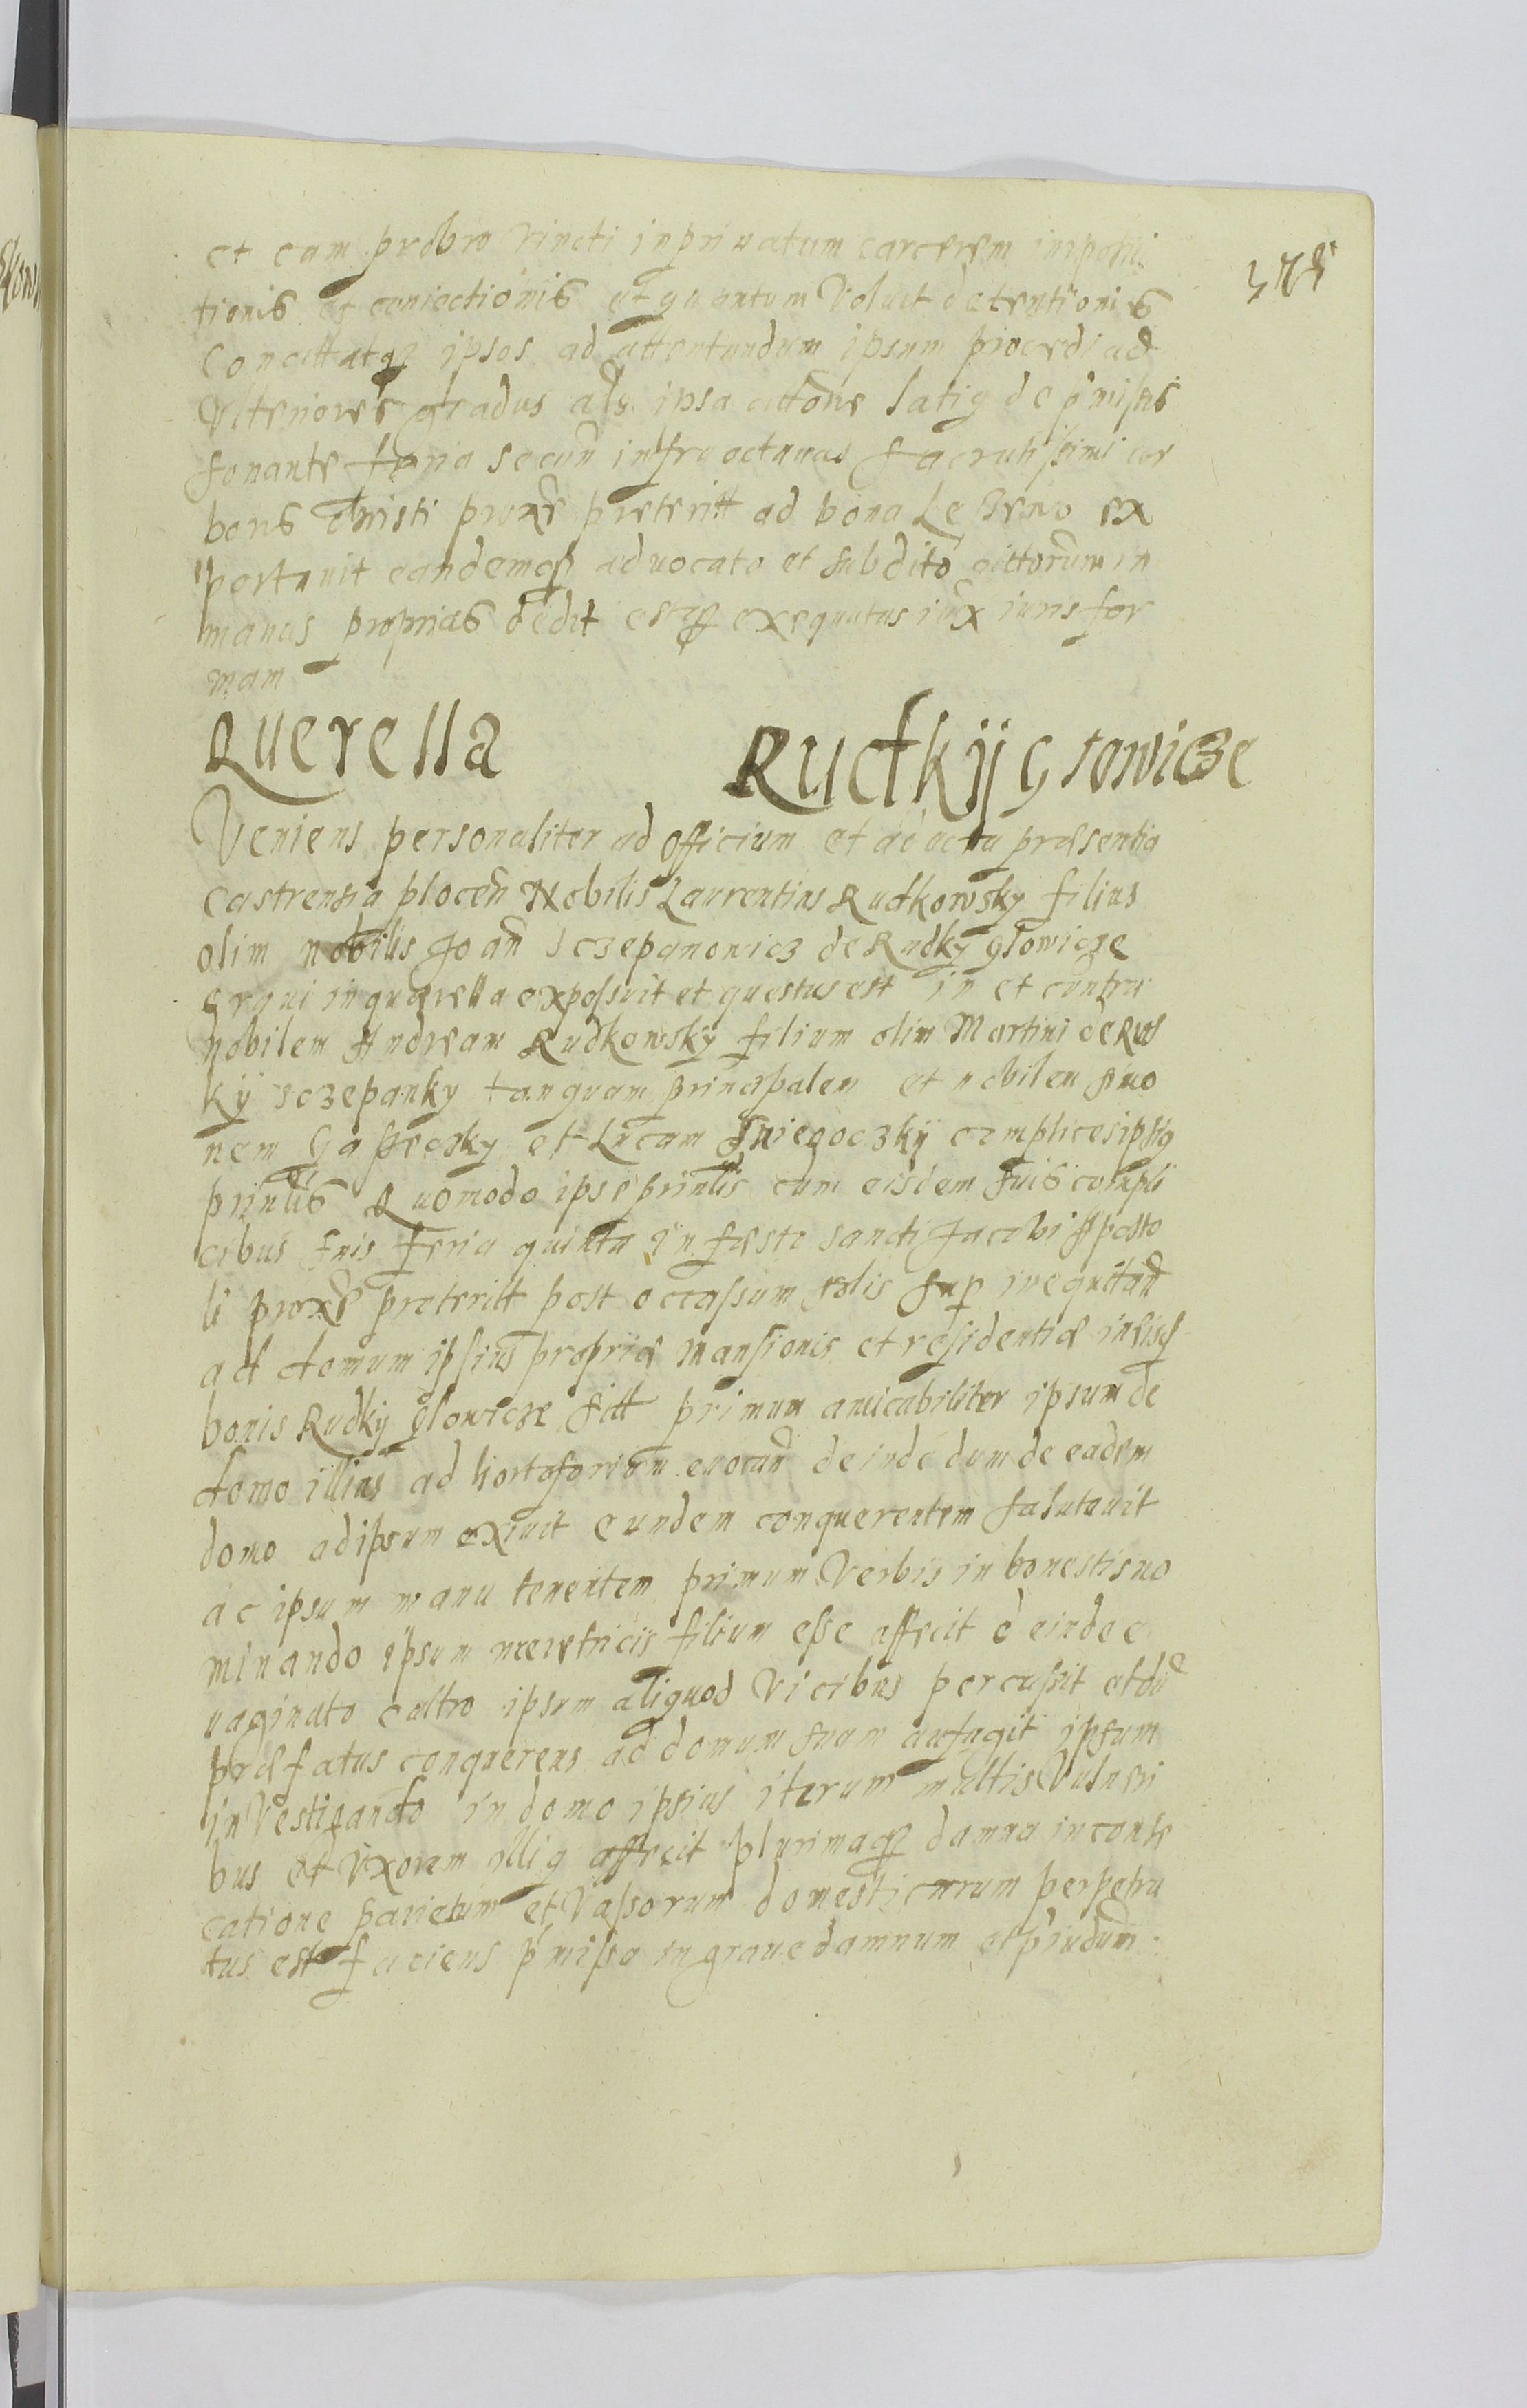 et eam probro vincti in privatum carcerem imposi
tionis et coniectionis et quantum voluit detentionis
Concittatq ipsos ad attentandum ipsum procedi ad
Ulteriores gradus als ipsa citone latig de pmissis
sonante feria secun infra octavas sacratissimi cor
poris Christi proxe preteritt ad bona ex
portavit eandemq advocato et subdito cittorum in
manus proprias dedit estq exequutus iux iuris for
mam
Querella Rudkÿ glowicze
Veniens personaliter ad Officium et ac acta præsentia
Castrensia plocen Nobilis Laurentius Rudkowsky filius
olim nobilis Joan Sczepanowicz de Rudky glowicze
in querella exposuit et questus est in et contra
nobilem Andream Rudkowskÿ filium olim Martini de Rud
kÿ Sczepanky tanquam principalem et nobilem
nem et Lucam complices ipsig
prinlis Quomodo ipse prinlis cum eisdem suis compli
cibus suis feria quinta in festo sancti Jacobi Aposto
li proxe preteritt post occassum solis sup inequitan
ad domum ipsius propriæ mansionis et residentiæ in
bonis Rudkÿ glowicze sitt primum amicabiliter ipsum de
domo illius ad evocan deinde dum de eadem
domo ad ipsum exivit eundem conquerentem salutavit
ac ipsum manu tenentem primum verbis inhonestis no
minando ipsum meretricis filium esse affecit deinde e
vaginato cultro ipsum aliquod vicibus percussit et du
præfatus conquerens ad domum suam aufugit ipsum
investigando in domo ipsius iterum multis vulneri
bus et uxorem illig affecit plurimaq damna in conse
catione parietum et vassorum domesticarum perpetra
tus est faciens pmissa in grave damnum et piudium